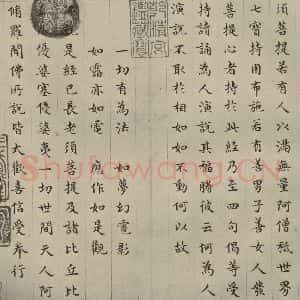 須菩提若有人以滿無量阿僧祇世界
七寶持用布施若有善男子善女人發
菩提心者持於此經乃至四句偈等受
持讀誦為人演說其福勝彼云何為人
演說不取於相如如不動何以故
一切有為法 如夢幻泡影
如露亦如電 應作如是觀
是經已長老須菩提及諸比丘比
優婆塞優婆夷一切世間天人阿
脩羅聞佛所說皆大歡喜信受奉行
Shufawang.CN